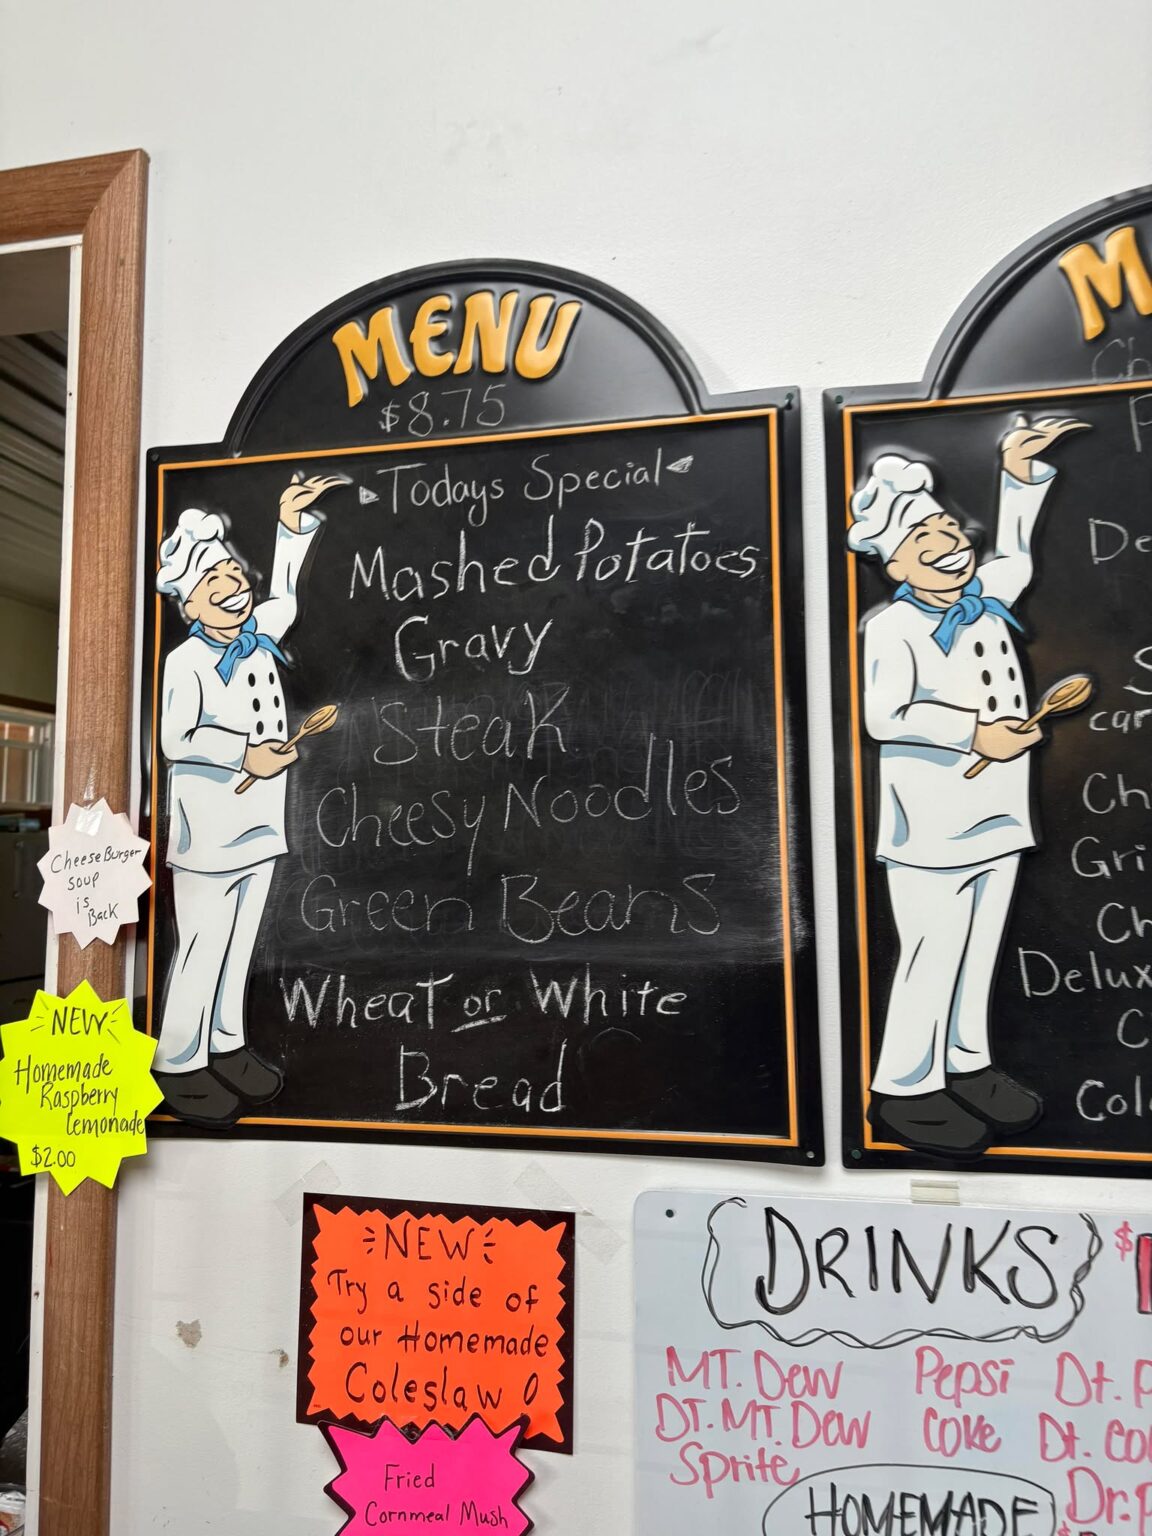 MENU
$8.75
Todays Special
Mashed Potatoes
Gravy
Steak
Cheesy Noodles
Green Beans
Wheat or White
Bread
M
Ch
P
De
S
car
Ch
Gri
Ch
Delux
C
Col
CheeseBurger
soup
is
Back
NEW
Homemade
Raspberry
lemonade
$2.00
NEW
Try a side of
our Homemade
Coleslaw
Fried
Cornmeal Mush
DRINKS $
MT. Dew Pepsi Dt. P
DT. MT. Dew Coke Dt. Co
Sprite Dr. P
HOMEMADE